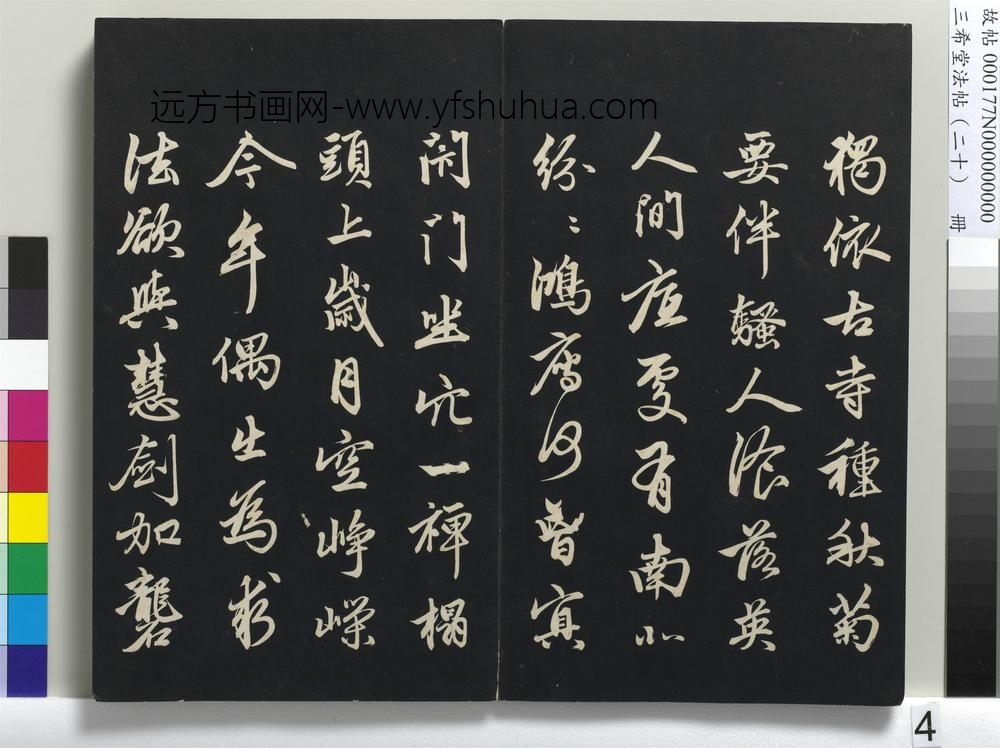 故帖 000177N000000000
三希堂法帖（二十） 冊
远方书画网-www.yfshuhua.com
獨依古寺種秋菊
要伴騷人飡落英
人間底處有南北
紛〻鴻鴈何曾冥
閉門坐穴一禪榻
頭上歲月空崢嶸
今年偶出為求
法欲與慧劍加礱
4